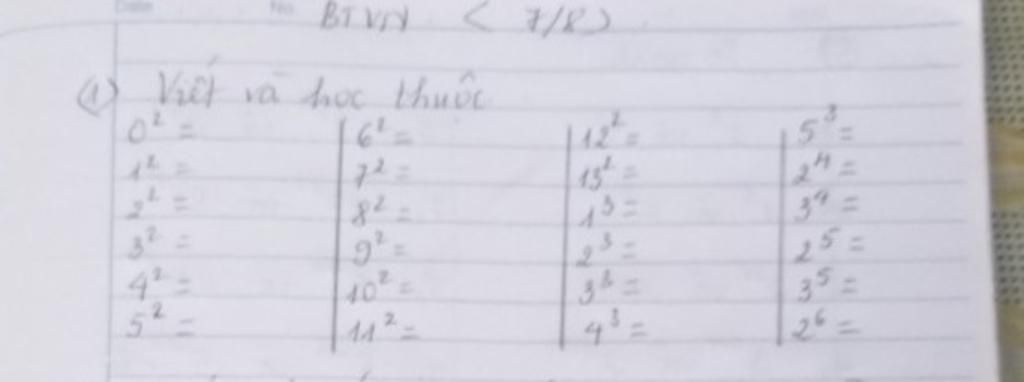 Date No.
BTVN ( 7/8 )
(1) Viết và học thuộc
0² = | 6² = | 12² = | 5³ =
1² = | 7² = | 13² = | 2⁴ =
2² = | 8² = | 1³ = | 3⁴ =
3² = | 9² = | 2³ = | 2⁵ =
4² = | 10² = | 3³ = | 3⁵ =
5² = | 11² = | 4³ = | 2⁶ =